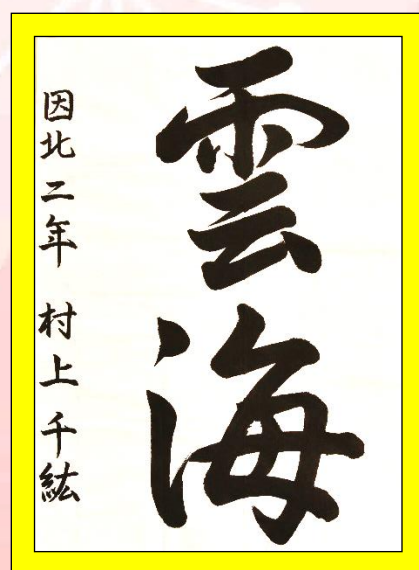 雲海
因北二年 村上千紘